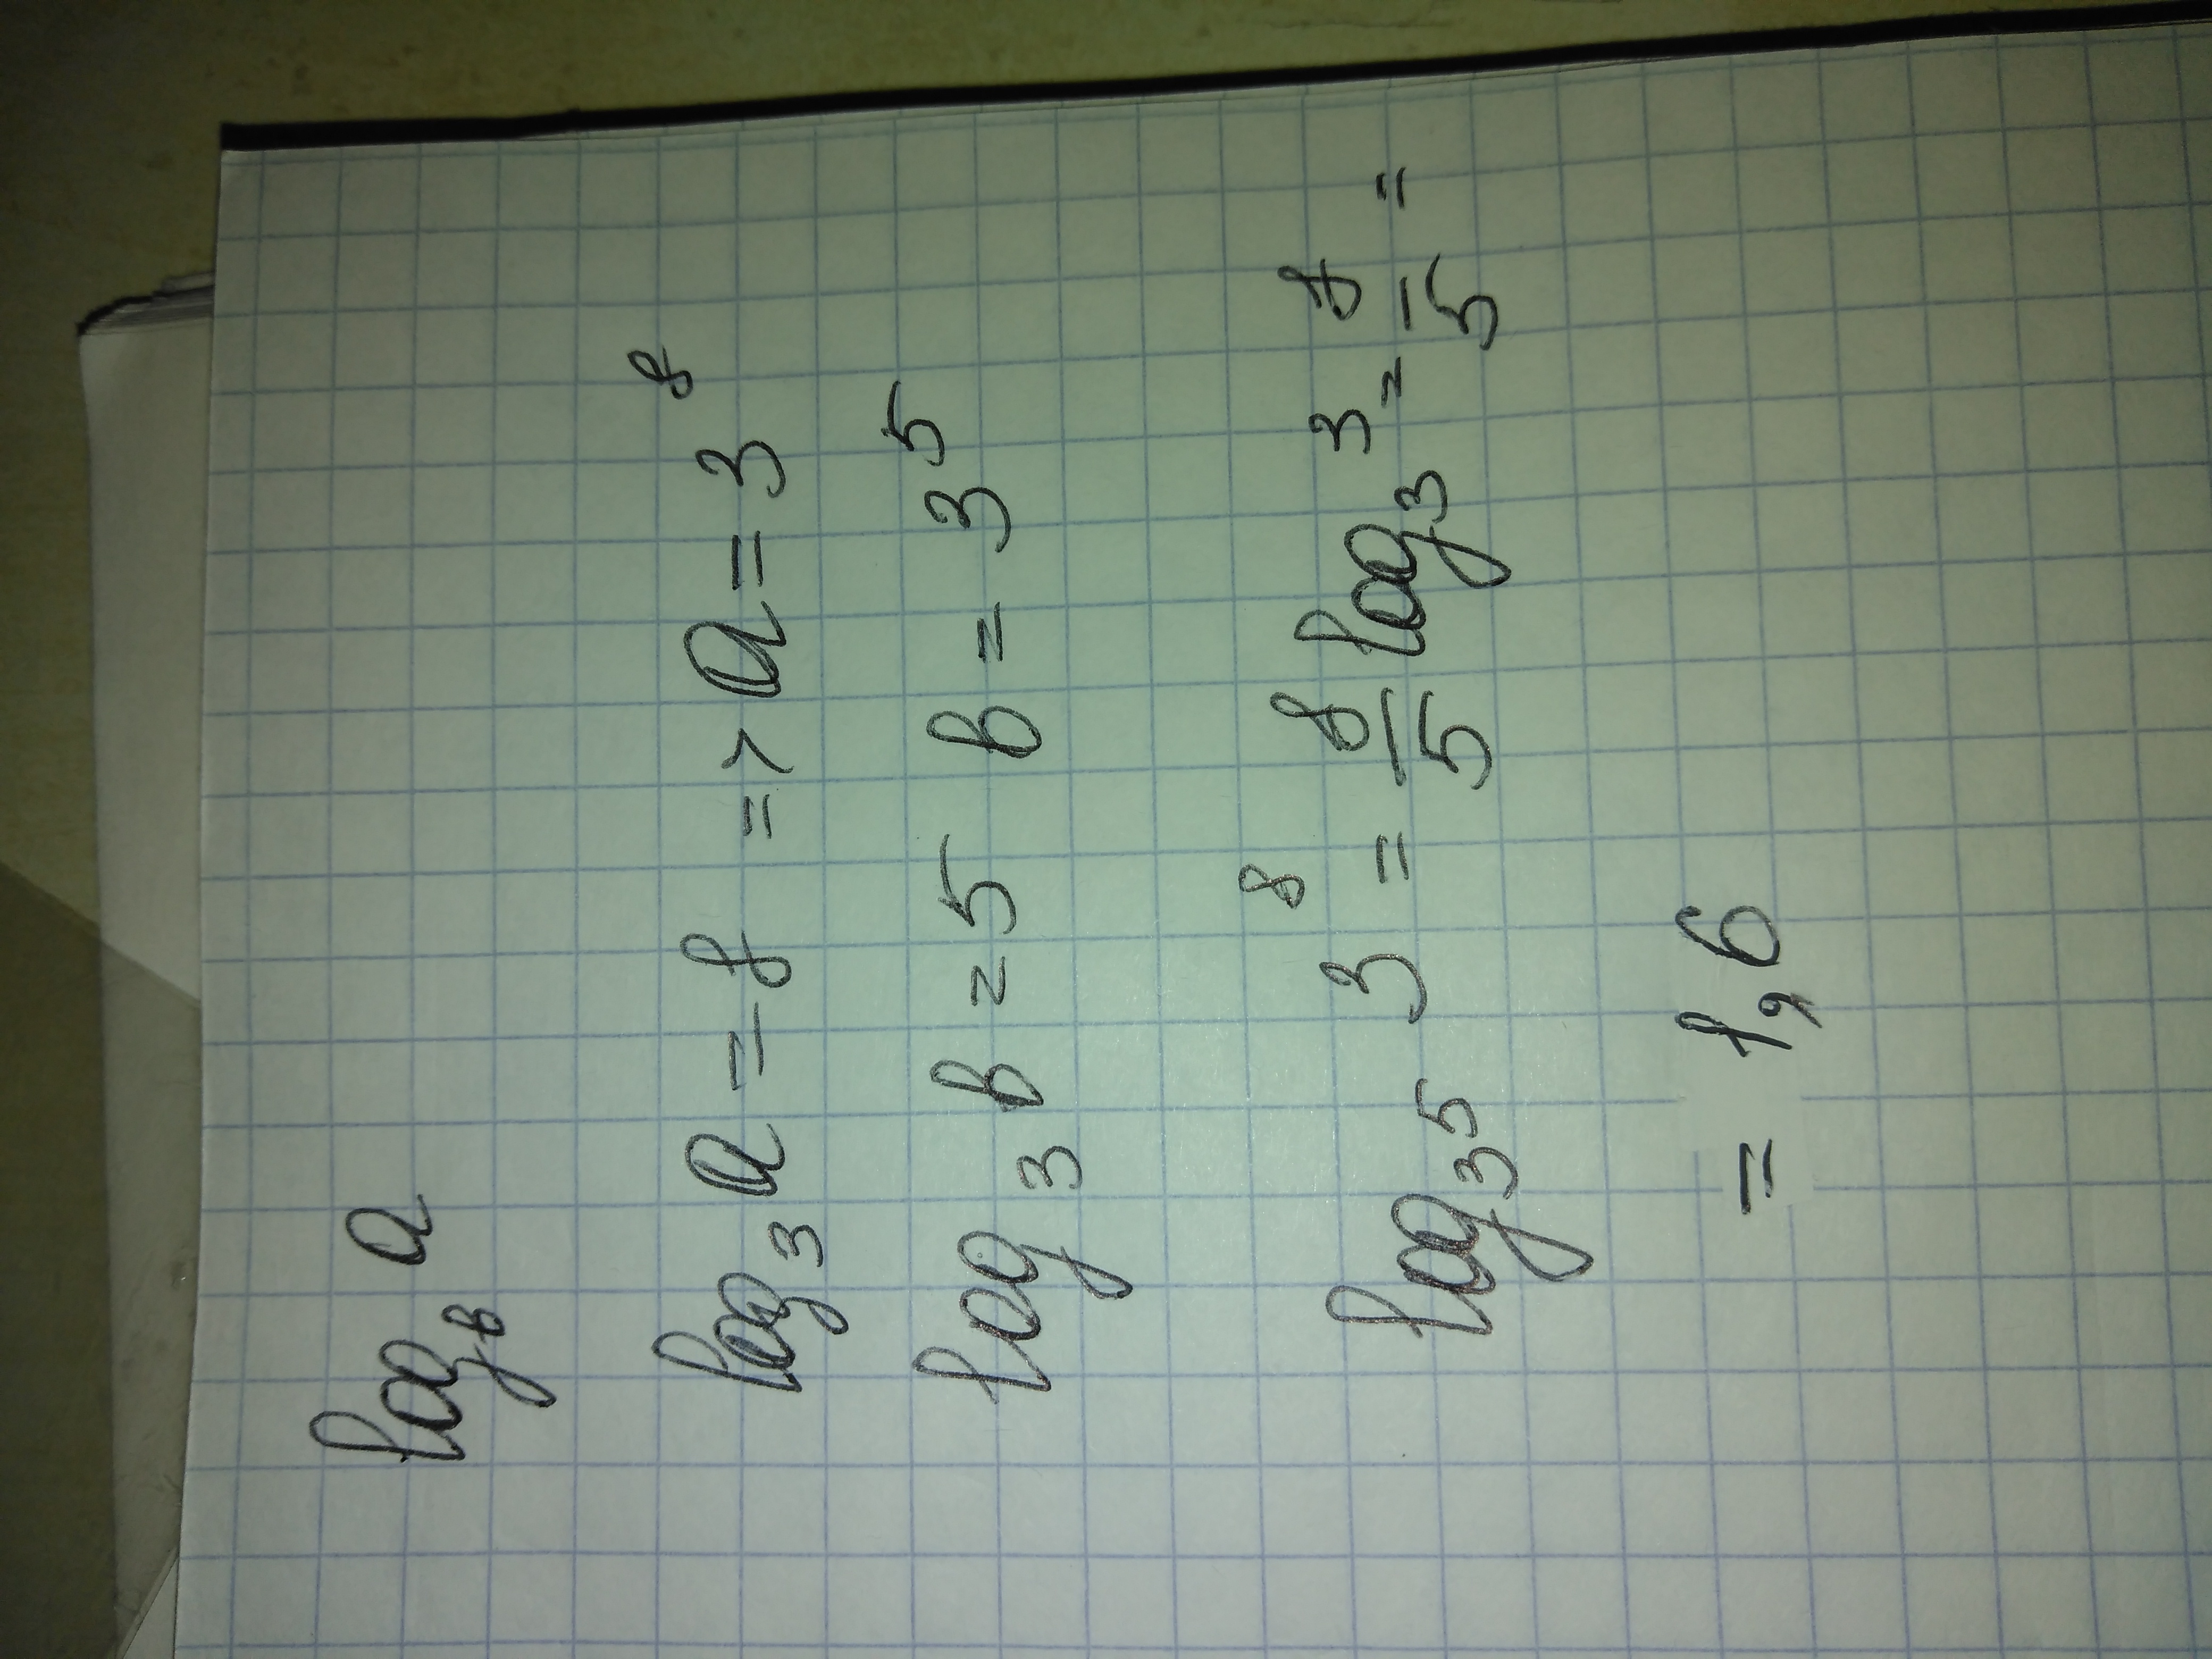 log_b a
log_3 a = 8 => a = 3^8
log_3 b = 5 b = 3^5
log_{3^5} 3^8 = 8/5 log_3 3 = 8/5 =
= 1,6